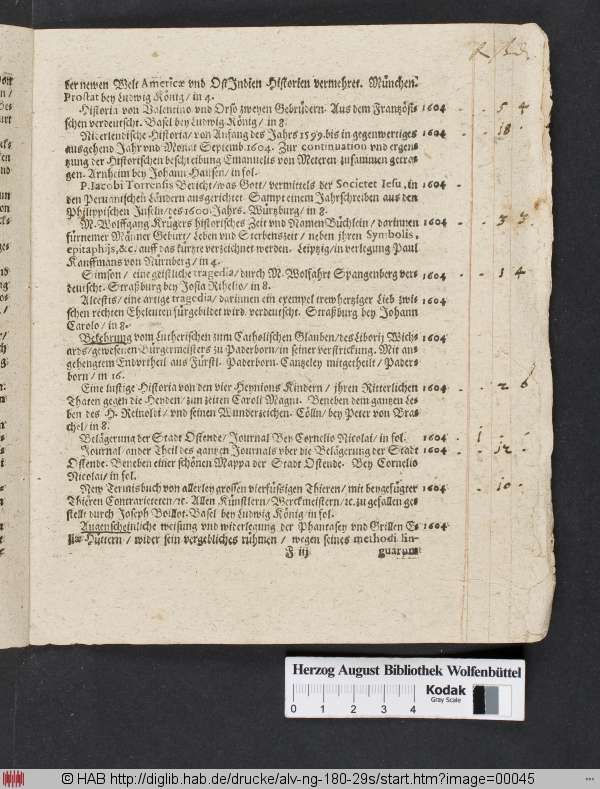 der newen Welt Americæ vnd Ost Indien Historien vermehret. München.
Prostat bey Ludwig König / in 4.
Historia von Valentino vnd Orso zweyen Gebrüdern. Aus dem Französi- 1604 - 5 4
schen verdeutscht. Basel bey Ludwig König / in 8.
Niderlendische Historia / von Anfang des Jahrs 1599. bis in gegenwertiges 1604 - 18
ausgehend Jahr vnd Monat Septemb. 1604. Zur continuation vnd ergen-
tzung der Historischen beschreibung Emanuelis von Meteren zusammen getra-
gen. Arnheim bey Johann Hansen / in fol.
P. Iacobi Torrensis Bericht / was Gott / vermittels der Societet Iesu, in 1604 -
den Peruantischen Ländern ausgerichtet. Sampt einem Jahrschreiben aus den
Philippischen Insuln / des 1600. Jahrs. Würtzburg / in 8.
M. Wolffgang Krügers historisches Zeit vnd Namen Büchlein / darinnen 1604 - 3 3
fürnemer Männer Geburt / Leben vnd Sterbenszeit / neben jhren Symbolis,
epitaphijs, &c. auff das kürtze verzeichnet werden. Leipzig / in verlegung Paul
Kauffmans von Nürnberg / in 4.
Simson / eine geistliche tragedia / durch M. Wolfahrt Spangenberg ver- 1604 - - 1 4
deutscht. Straßburg bey Josia Rihelio / in 8.
Alcestis / eine artige tragedia / darinnen ein exempel trewhertziger Lieb zwi- 1604
schen rechten Eheleuten fürgebildet wird. verdeutscht. Straßburg bey Johann
Carolo / in 8.
Bekehrung vom Lutherischen zum Catholischen Glauben / des Liborij Wich- 1604
ards / gewesenen Bürgermeisters zu Paderborn / in seiner verstrickung. Mit an-
gehengtem Endvrtheil aus Fürstl. Paderborn. Cantzeley mitgetheilt / Pader-
born / in 16.
Eine lustige Historia von den vier Heymons Kindern / jhren Ritterlichen 1604 - - 2 6
Thaten gegen die Heyden / zun zeiten Caroli Magni. Beneben dem gantzen Le-
ben des H. Reinoldi / vnd seinen Wunderzeichen. Cölln / bey Peter von Bra-
chel / in 8.
Belägerung der Stadt Ostende / Journal Bey Cornelio Nicolai / in fol. 1604 - 1
Journal / ander Theil des gantzen Journals vber die Belägerung der Stadt 1604 - 12
Ostende. Beneben einer schönen Mappa der Stadt Ostende. Bey Cornelio
Nicolai / in fol.
New Termisbuch von allerley grossen vierfüssigen Thieren / mit beygefügter 1604 - 10
Thieren Contrarieteten / ꝛc. Allen Künstlern / Werckmeistern / ꝛc. zu gefallen ge-
stellt durch Joseph Boillot. Basel bey Ludwig König / in fol.
Augenscheinliche weisung vnd widerlegung der Phantasey vnd Grillen E- 1604
liæ Hüttern / wider sein vergebliches rühmen / wegen seines methodi lin-
F iij guarum
Herzog August Bibliothek Wolfenbüttel
0 1 2 3 4
Kodak
Gray Scale
© HAB http://diglib.hab.de/drucke/alv-ng-180-29s/start.htm?image=00045